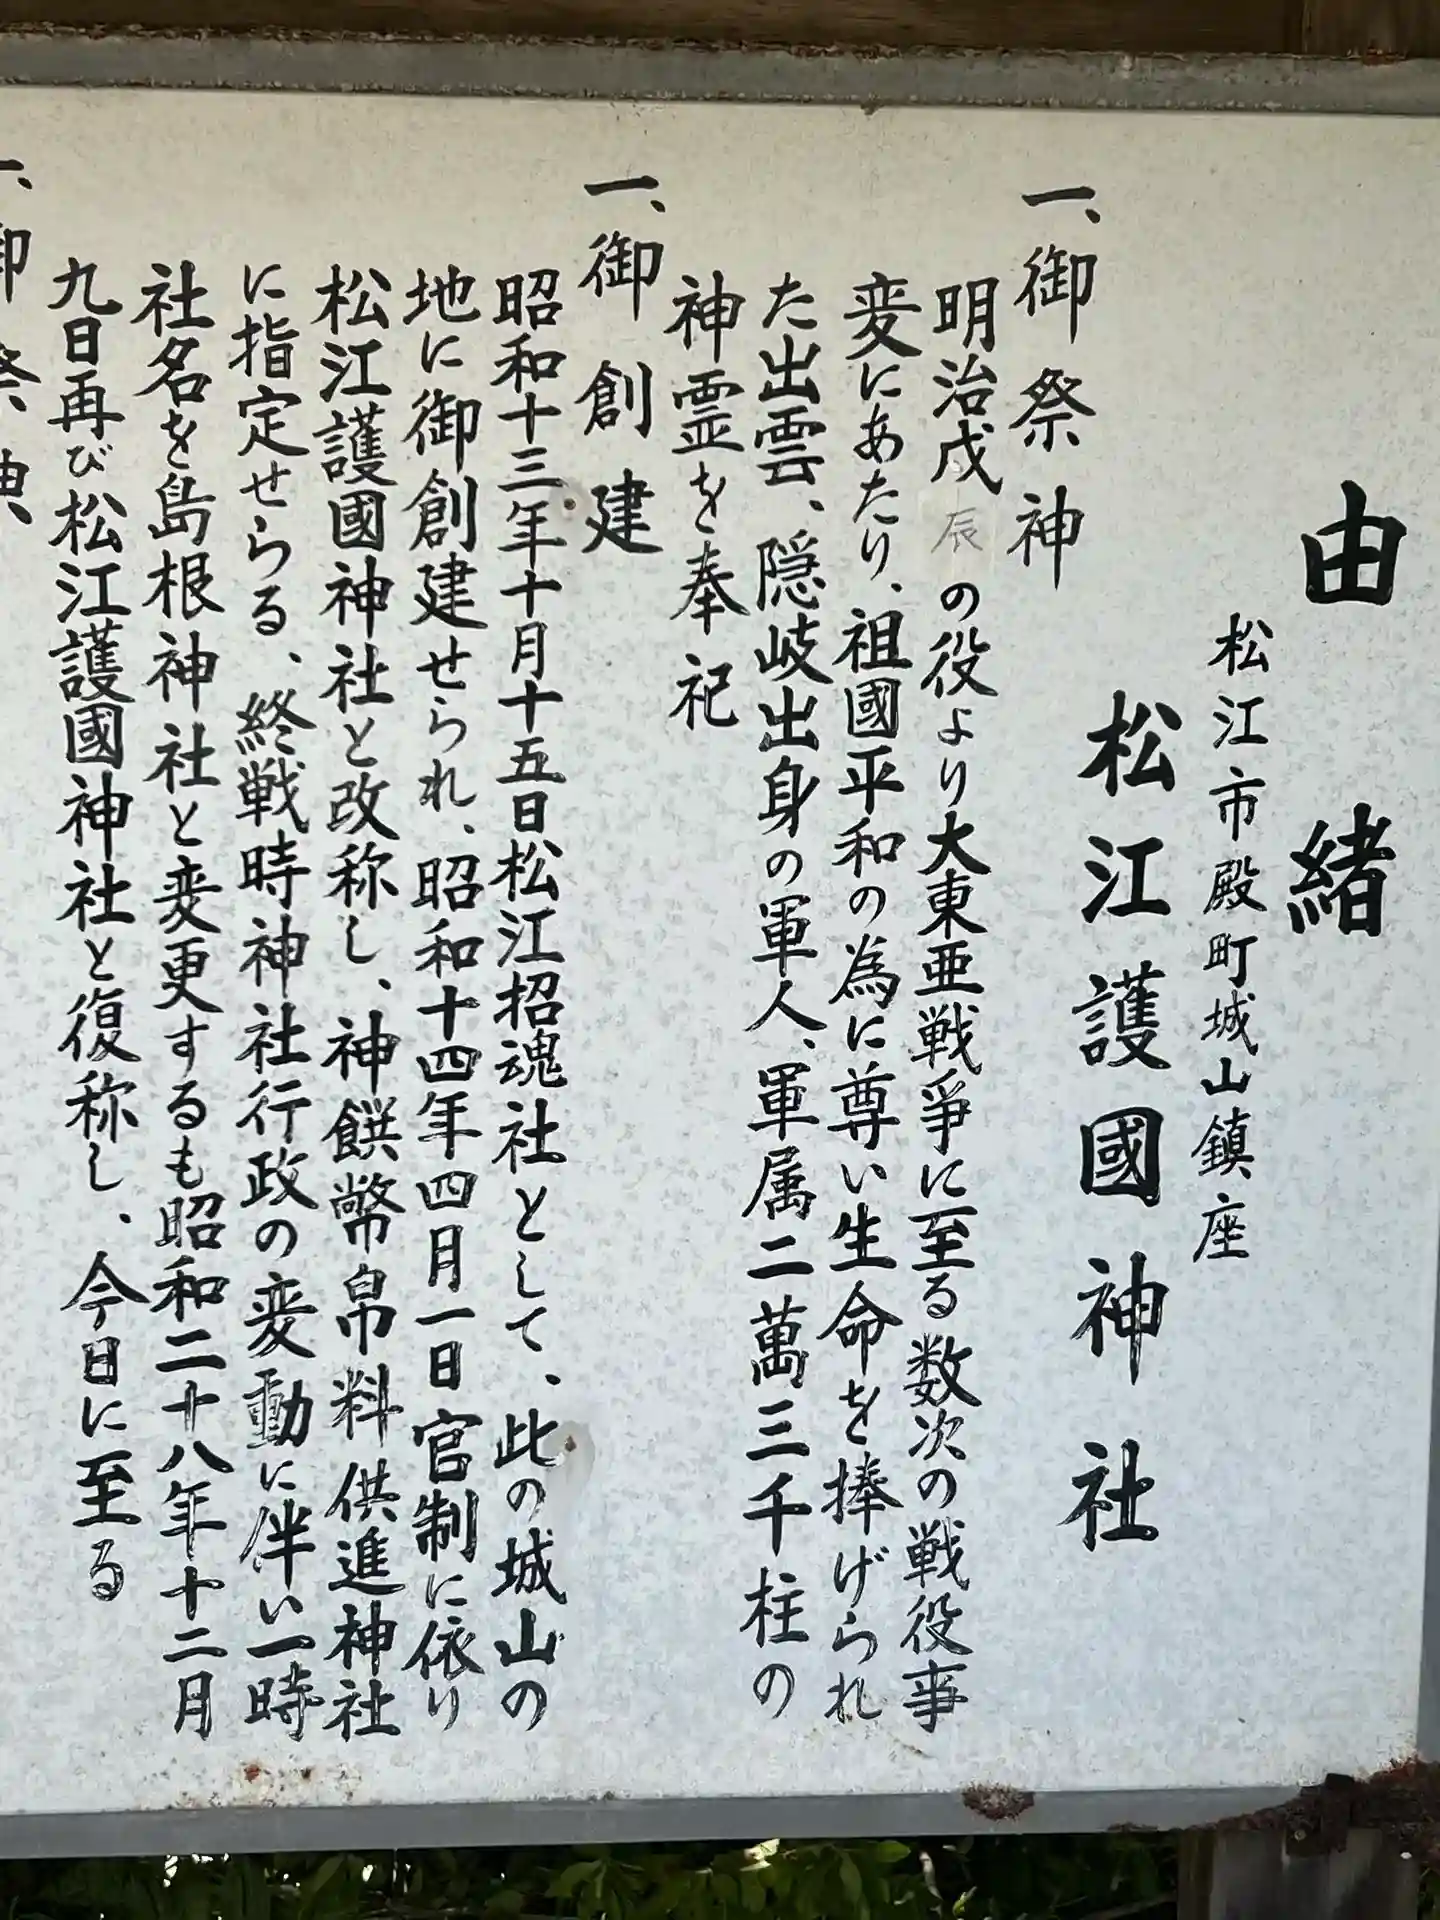 由緒
松江市殿町城山鎮座
松江護國神社
一、御祭神
明治戊辰の役より大東亜戦争に至る数次の戦役事
変にあたり、祖國平和の為に尊い生命を捧げられ
た出雲、隠岐出身の軍人、軍属二萬三千柱の
神霊を奉祀
一、御創建
昭和十三年十月十五日松江招魂社として、此の城山の
地に御創建せられ、昭和十四年四月一日官制に依り
松江護國神社と改称し、神饌幣帛料供進神社
に指定せらる、終戦時神社行政の変動に伴い一時
社名を島根神社と変更するも昭和二十八年十二月
九日再び松江護國神社と復称し、今日に至る